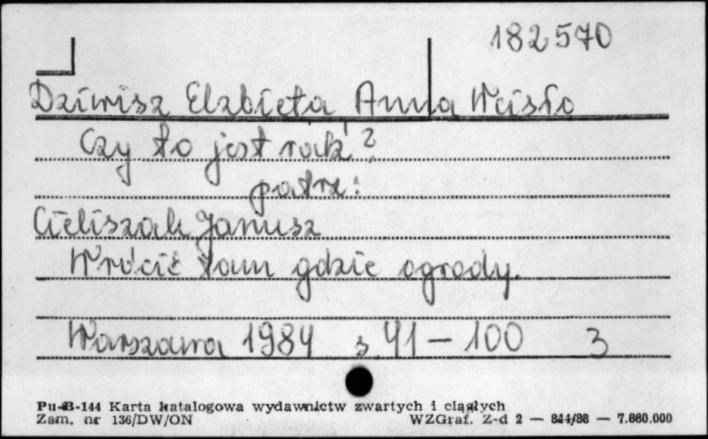 182570
Dziwisz Elżbieta Anna Wcisło
Czy to jest rak?
patrz:
Cieliszak Janusz
Wrócić tam gdzie ogrody.
Warszawa 1984 s 41 - 100 3
Pu-B-144 Karta katalogowa wydawnictw zwartych i ciągłych
Zam. nr 136/DW/ON WZGraf. Z-d 2 — 844/88 — 7.660.000